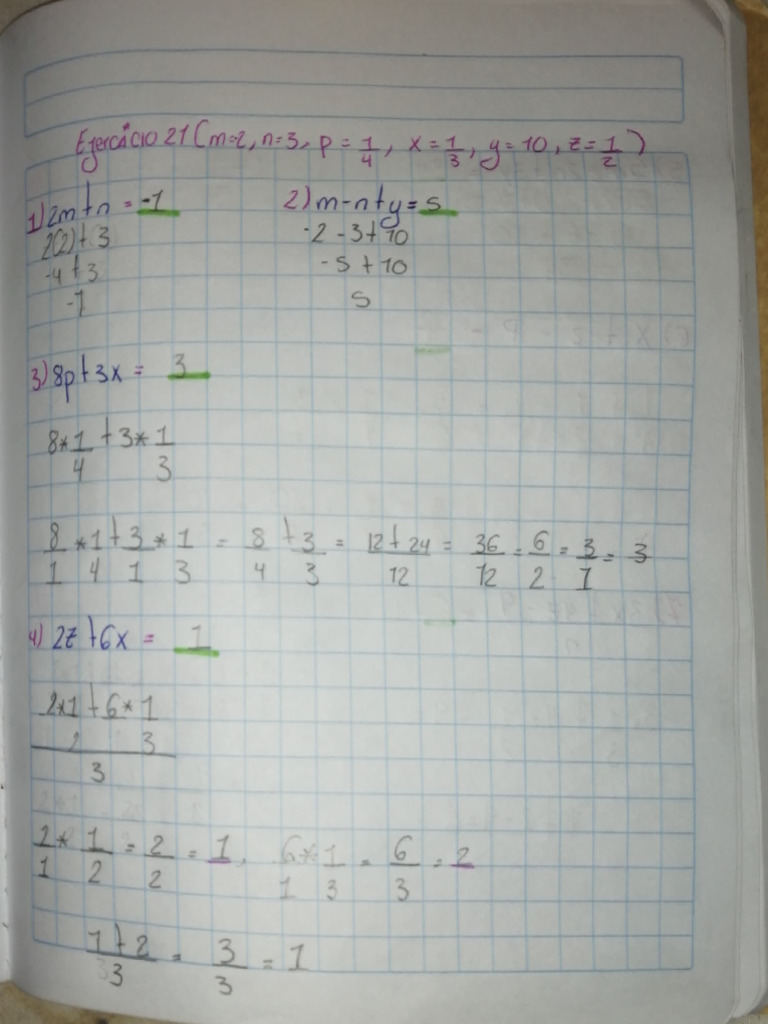 Ejercicio 21 (m=2, n=3, p = 1/4, x = 1/3, y = 10, z = 1/2)
1) 2m+n = -1
2(2)+3
-4+3
-1
2) m-n+y = 5
-2-3+10
-5+10
5
3) 8p+3x = 3
8*1/4 + 3*1/3
8/1 * 1/4 + 3/1 * 1/3 = 8/4 + 3/3 = 12+24/12 = 36/12 = 6/2 = 3/1 = 3
4) 2z+6x = 1
2*1/2 + 6*1/3
3
2/1 * 1/2 = 2/2 = 1, 6/1 * 1/3 = 6/3 = 2
1+2/3 = 3/3 = 1